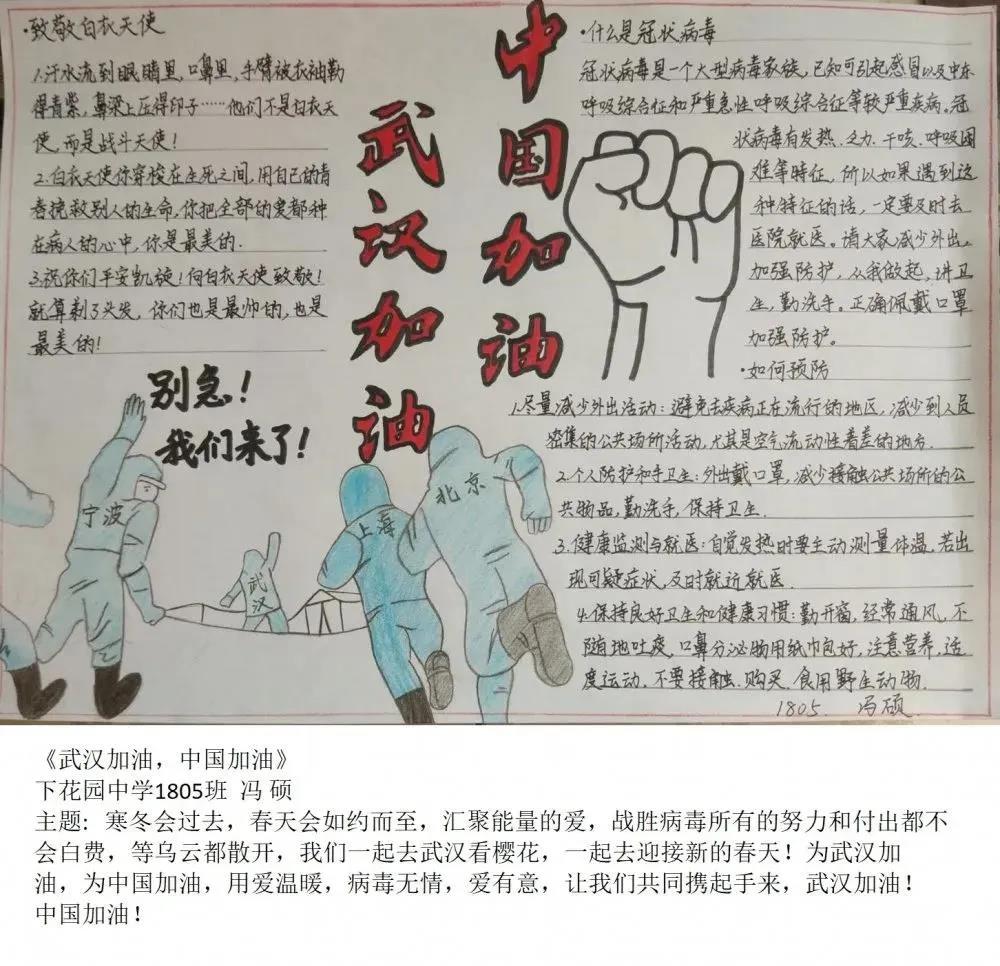 ·致敬白衣天使
1.汗水流到眼睛里,口鼻里,手臂被衣袖勒
得青紫,鼻梁上压得印子……他们不是白衣天
使,而是战斗天使!
2.白衣天使你穿梭在生死之间,用自己的青
春挽救别人的生命,你把全部的爱都种
在病人的心中,你是最美的.
3.祝你们平安凯旋!向白衣天使致敬!
就算剃了头发,你们也是最帅的,也是
最美的!
武汉加油
中国加油
·什么是冠状病毒
冠状病毒是一个大型病毒家族,已知可引起感冒以及中东
呼吸综合征和严重急性呼吸综合征等较严重疾病。冠
状病毒有发热、乏力、干咳、呼吸困
难等特征,所以如果遇到这
种特征的话,一定要及时去
医院就医。请大家减少外出,
加强防护,从我做起,讲卫
生,勤洗手。正确佩戴口罩
加强防护。
·如何预防
1.尽量减少外出活动:避免去疾病正在流行的地区,减少到人员
密集的公共场所活动,尤其是空气流动性着差的地方.
2.个人防护和手卫生:外出戴口罩,减少接触公共场所的公
共物品,勤洗手,保持卫生.
3.健康监测与就医:自觉发热时要主动测量体温,若出
现可疑症状,及时就近就医.
4.保持良好卫生和健康习惯:勤开窗,经常通风,不
随地吐痰,口鼻分泌物用纸巾包好,注意营养,适
度运动.不要接触、购买、食用野生动物.
1805. 冯硕
别急!
我们来了!
宁波
武汉
上海
北京
《武汉加油,中国加油》
下花园中学1805班 冯 硕
主题: 寒冬会过去,春天会如约而至,汇聚能量的爱,战胜病毒所有的努力和付出都不
会白费,等乌云都散开,我们一起去武汉看樱花,一起去迎接新的春天!为武汉加
油,为中国加油,用爱温暖,病毒无情,爱有意,让我们共同携起手来,武汉加油!
中国加油!